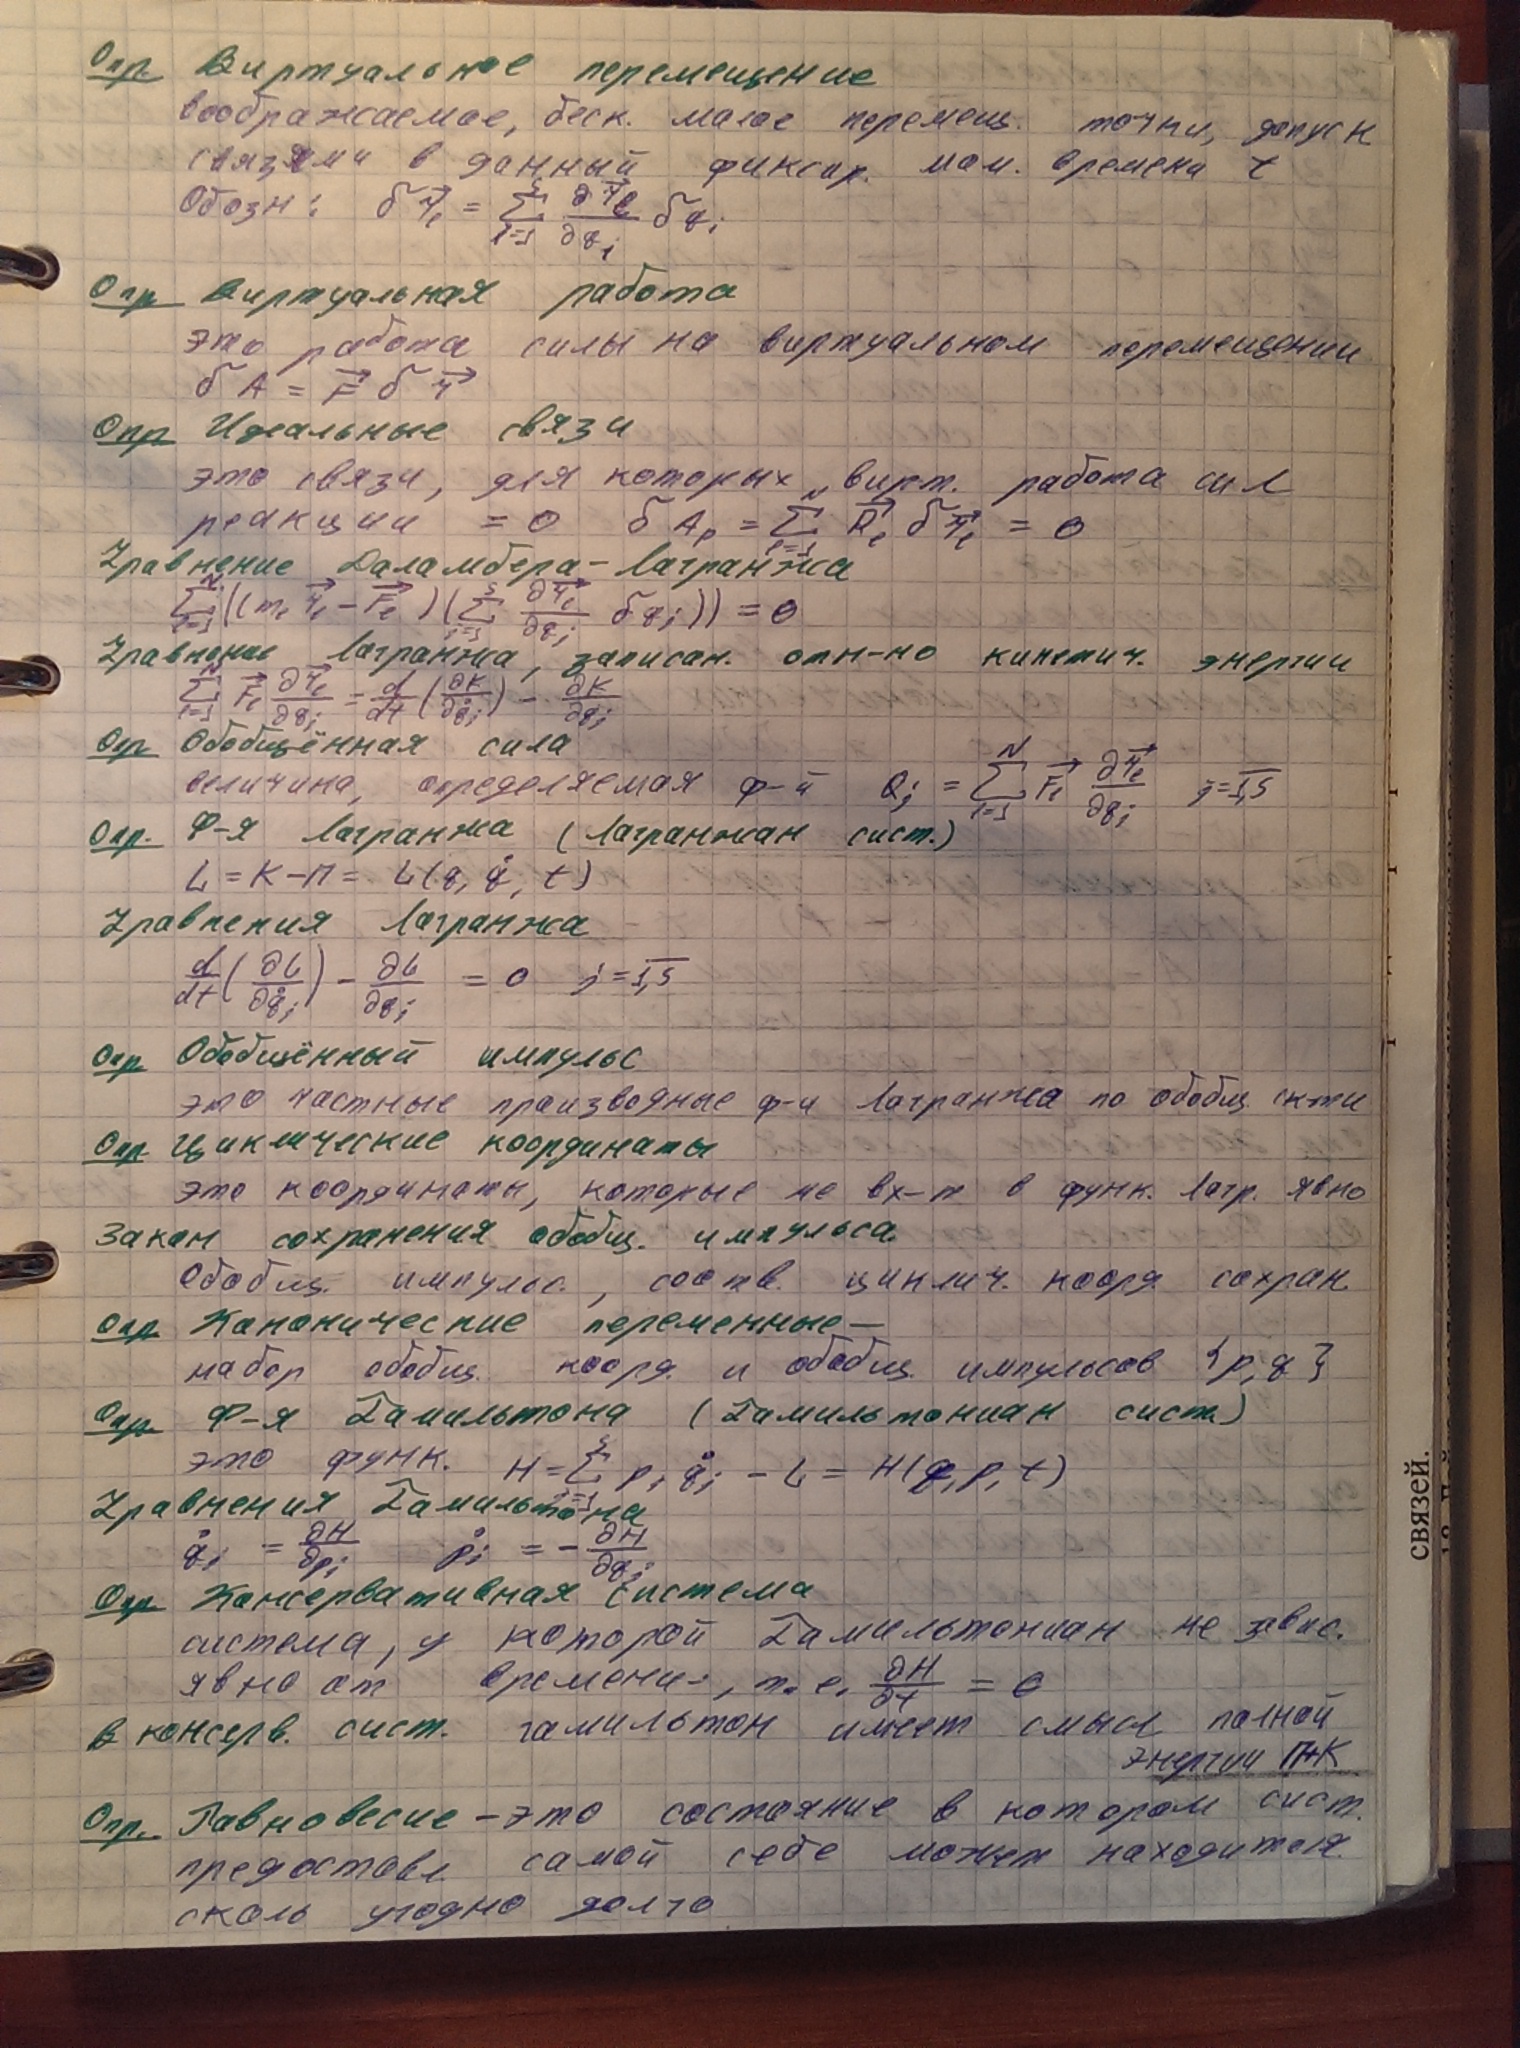 Опр. Виртуальное перемещение
воображаемое, беск. малое перемещ. точки, допуск
связями в данный фиксир. мом. времени t
Обозн: δr⃗ᵢ = Σ ∂r⃗ᵢ/∂qⱼ δqⱼ
Опр Виртуальная работа
это работа силы на виртуальном перемещении
δA = F⃗ δr⃗
Опр Идеальные связи
это связи, для которых вирт. работа сил
реакции = 0 δAₚ = Σᵢ₌₁ᴺ R⃗ᵢ δr⃗ᵢ = 0
Уравнение Даламбера-Лагранжа
Σᵢ₌₁ᴺ((mᵢ r⃗ᵢ - F⃗ᵢ)(Σⱼ₌₁ˢ ∂r⃗ᵢ/∂qⱼ δqⱼ)) = 0
Уравнение Лагранжа, записан. отн-но кинетич. энергии
Σᵢ₌₁ᴺ F⃗ᵢ ∂r⃗ᵢ/∂qⱼ = d/dt (∂K/∂q̇ⱼ) - ∂K/∂qⱼ
Опр Обобщённая сила
величина, определяемая ф-й Qⱼ = Σᵢ₌₁ᴺ F⃗ᵢ ∂r⃗ᵢ/∂qⱼ j=1,s
Опр. Ф-я Лагранжа (Лагранжан сист.)
L = K-П = L(q, q̇, t)
Уравнения Лагранжа
d/dt (∂L/∂q̇ⱼ) - ∂L/∂qⱼ = 0 j=1,s
Опр Обобщённый импульс
это частные производные ф-и Лагранжа по обобщ ск-ти
Опр Циклические координаты
это координаты, которые не вх-т в функ. Лагр. явно
Закон сохранения обобщ. импульса.
Обобщ. импульс., соотв. циклич. коорд. сохран.
Опр Канонические переменные—
набор обобщ. коорд. и обобщ. импульсов {p,q}
Опр. Ф-я Гамильтона (Гамильтониан сист.)
это функ. H = Σⱼ₌₁ˢ pⱼ q̇ⱼ - L = H(q,p,t)
Уравнения Гамильтона
q̇ⱼ = ∂H/∂pⱼ ṗⱼ = - ∂H/∂qⱼ
Опр Консервативная система
система, у которой Гамильтониан не завис.
явно от времени, т.е. ∂H/∂t = 0
В консерв. сист. гамильтон имеет смысл полной
энергии П+К
Опр. Равновесие - это состояние в котором сист.
предоставл. самой себе может находится
сколь угодно долго
связей.